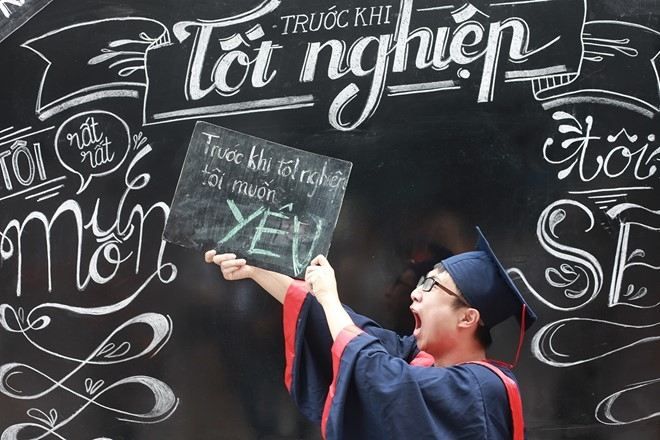 TRƯỚC KHI
Tốt nghiệp
TÔI
rất
rất
Muốn
Trước khi tốt nghiệp
tôi muốn
YÊU
tôi
SẼ